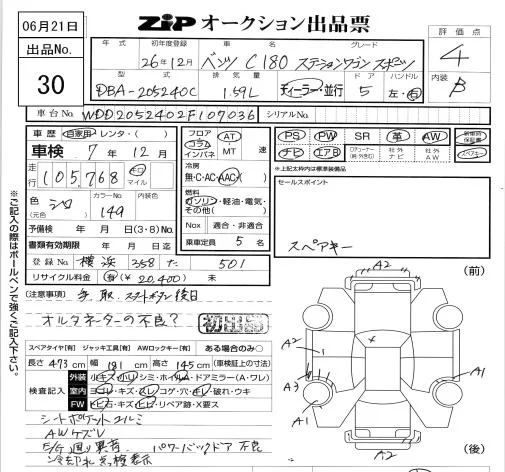 06月21日
ZIP オークション出品票
出品No. 30
年式 初年度登録 車名 グレード
26年12月 ベンツ C180 ステーションワゴン スポーツ
型式 排気量 ドア ハンドル
DBA-205240C 1.59L ディーラー・並行 5 左・右
評価点 4
内装 B
車台No. WDD2052402F107036 シリアルNo.
車歴 自家用・レンタ・( )
車検 7年 12月
走行 105,768 キロ マイル
色(元色) シロ カラーNo. 149 内装色
予備検 年 月 日(3・8)No.
書類有効期限 年 月 日迄
登録No. 横浜 358 た 501
リサイクル料金 有(¥20,400) 未
フロア コラム インパネ AT MT 速
冷房 無・C・AC・AAC
燃料 ガソリン・軽油・電気・その他( )
Nox 適合・非適合
乗車定員 5 名
PS PW SR 革 AW 装着時保証書
ナビ エアB 社外ナビ 社外AW スペアキー
※上記太枠内は標準装備品
セールスポイント
スペアキー
[注意事項] 手、取、スペアキー 後日
オルタネーターの不良?
初出品
スペアタイヤ[有] ジャッキ工具[有] AWロックキー[有] ある場合のみ○
長さ 473cm 幅 181cm 高さ 145cm (車検証上の寸法)
検査記入
外装 小キズ・小凹・シミ・ホイルA・ドアミラー(A・ワレ)
室内 ヨゴレ・キズ・スレ・コゲ・穴・キレ・破れ・ウキ
FW 飛石・キズ・ヒビ・リペア跡・X要ス
シートポケットユルミ
AWケズレ
パワーバックドア 不良
冷却水 点検表示
※ご記入の際はボールペンで強くご記入下さい。
(前)
A2
A2
A3
A1
A1
A2
(後)